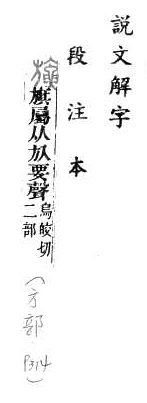 說文解字
段注本
旗屬从㫃要聲烏皎切
二部
(方部
P314)